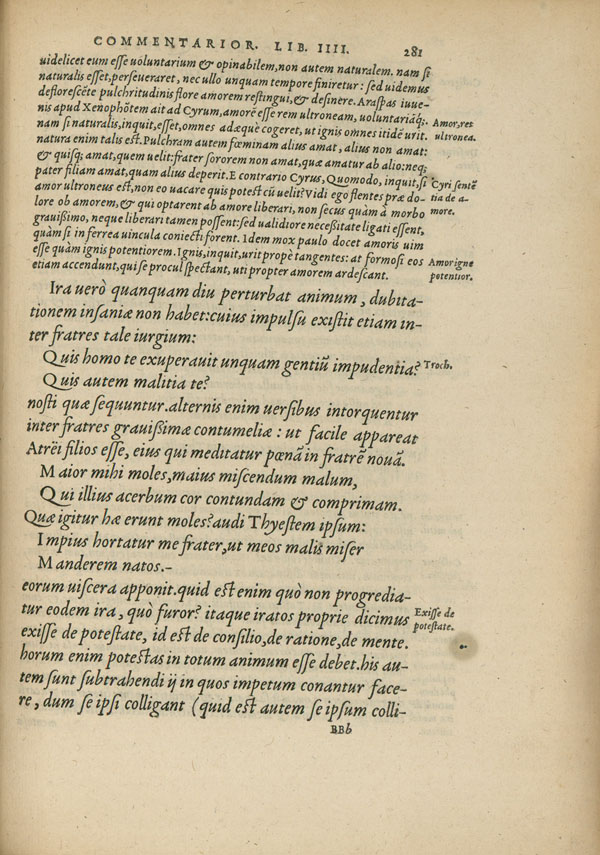 COMMENTARIOR. LIB. IIII. 281
uidelicet eum esse uoluntarium & opinabilem, non autem naturalem. nam si
naturalis esset, perseueraret, nec ullo unquam tempore finiretur: sed uidemus
deflorescēte pulchritudinis flore amorem restingui, & desinere. Araspas iuue-
nis apud Xenophōtem ait ad Cyrum, amorē esse rem ultroneam, uoluntariāq;.
Amor, res
nam si naturalis, inquit, esset, omnes adæque cogeret, ut ignis omnes itidē urit.
ultronea.
natura enim talis est. Pulchram autem fœminam alius amat, alius non amat:
& quisq; amat, quem uelit: frater sororem non amat, quæ amatur ab alio: neq;
pater filiam amat, quam alius deperit. E contrario Cyrus, Quomodo, inquit, si
Cyri sentē
amor ultroneus est, non eo uacare quis potest cū uelit? Vidi ego flentes præ do-
tia de a-
lore ob amorem, & qui optarent ab amore liberari, non secus quàm à morbo
more.
grauissimo, neque liberari tamen possent: sed ualidiore necessitate ligati essent,
quàm si in ferrea uincula coniecti forent. Idem mox paulo docet amoris uim
esse quàm ignis potentiorem. Ignis, inquit, urit propè tangentes: at formosi eos
Amor igne
etiam accendunt, qui se procul spectant, uti propter amorem ardescant.
potentior.
Ira uerò quanquam diu perturbat animum, dubita-
tionem insaniæ non habet: cuius impulsu existit etiam in-
ter fratres tale iurgium:
Quis homo te exuperauit unquam gentiū impudentia?
Troch.
Quis autem malitia te?
nosti quæ sequuntur. alternis enim uersibus intorquentur
inter fratres grauissimæ contumeliæ: ut facile appareat
Atrëi filios esse, eius qui meditatur pœnā in fratrē nouā.
Maior mihi moles, maius miscendum malum,
Qui illius acerbum cor contundam & comprimam.
Quæ igitur hæ erunt moles? audi Thyestem ipsum:
Impius hortatur me frater, ut meos malis miser
Manderem natos.-
eorum uiscera apponit. quid est enim quò non progredia-
tur eodem ira, quò furor? itaque iratos proprie dicimus
Exisse de
exisse de potestate, id est de consilio, de ratione, de mente.
potestate.
horum enim potestas in totum animum esse debet. his au-
tem sunt subtrahendi ij in quos impetum conantur face-
re, dum se ipsi colligant (quid est autem se ipsum colli-
BBb